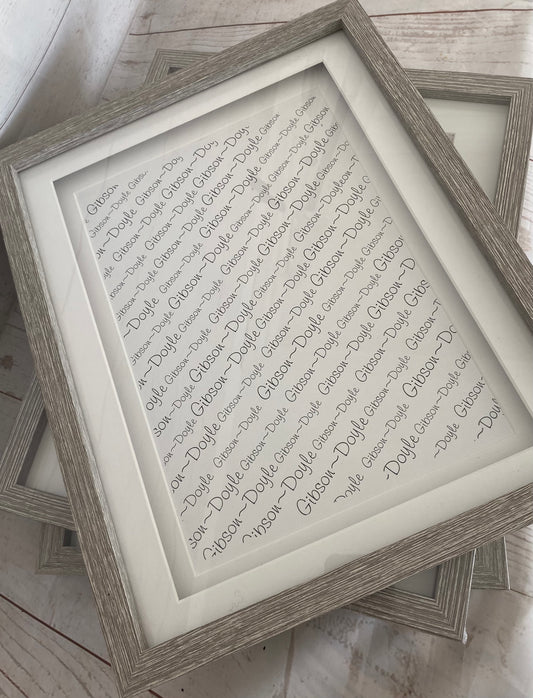 Gibson~Doy
Gibson~Doyle Gibson~Doy
Gibson~Doyle Gibson~Doyle Gibson
Gibson~Doyle Gibson~Doyle Gibson~Doyle
Gibson~Doyle Gibson~Doyle Gibson~Doyle
Gibson~Doyle Gibson~Doyle Gibson~Doyle
Gibson~Doyle Gibson~Doyle Gibson~Doyle
Doyle Gibson~Doyle Gibson~Doyle Gibson~Doyle
Doyle Gibson~Doyle Gibson~Doyle Gibson~Doyle
Doyle Gibson~Doyle Gibson~Doyle Gibson~D
~Doyle Gibson~Doyle Gibson~Doyle Gibson
Gibson~Doyle Gibson~Doyle Gibson~Doyle
Gibson~Doyle Gibson~Doyle Gibson
Gibson~Doyle
~Doyle